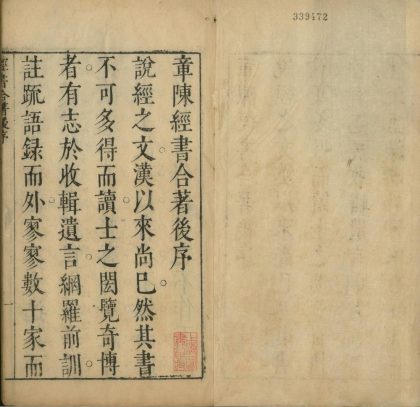 339472
章陳經書合著後序
說經之文漢以來尚已然其書
不可多得而讀士之閎覽奇博
者有志於收輯遺言網羅前訓
註疏語録而外寥寥數十家而
一